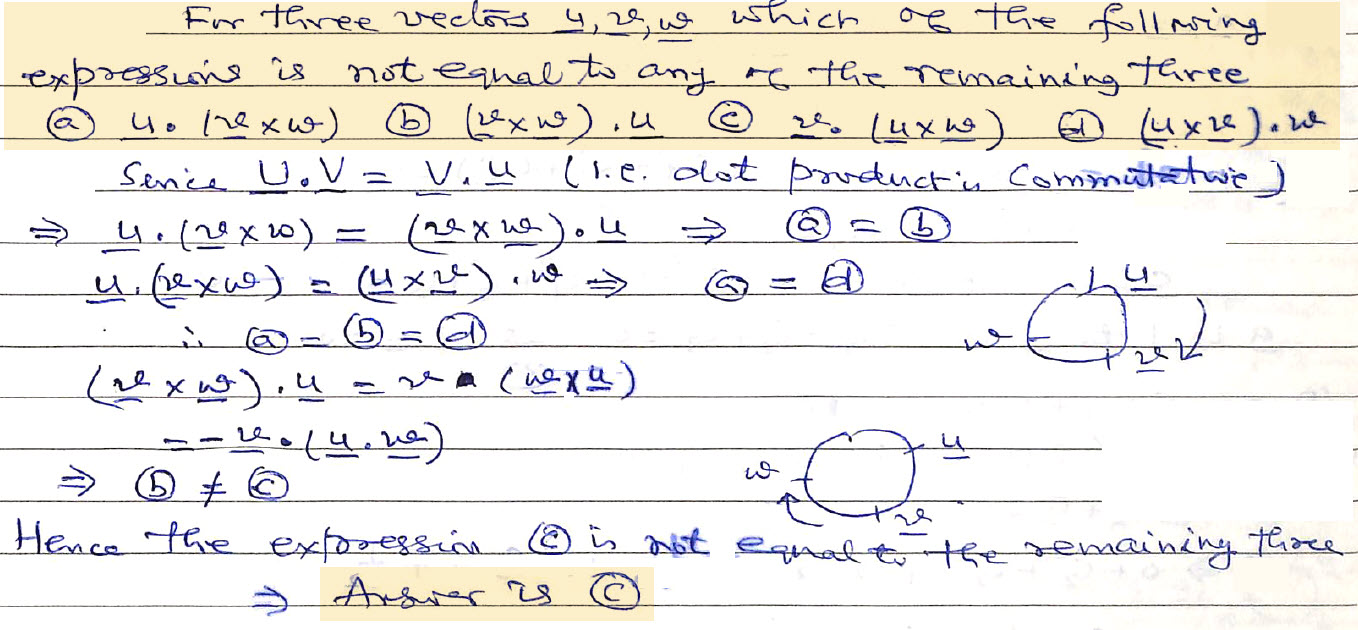 For three vectors u, v, w which of the following
expressions is not equal to any of the remaining three
ⓐ u. (v × w) ⓑ (v × w) . u ⓒ v. (u × w) ⓓ (u × v) . w
Sence U . V = V . u (i.e. dot product is Commutative)
⇒ u . (v × w) = (v × w) . u ⇒ ⓐ = ⓑ
u . (v × w) = (u × v) . w ⇒ ⓐ = ⓓ
∴ ⓐ = ⓑ = ⓓ
(v × w) . u = v . (w × u)
= - v . (u . w)
⇒ ⓑ ≠ ⓒ
Hence the expression ⓒ is not equal to the remaining three
⇒ Answer is ⓒ
u
w
v
u
w
v